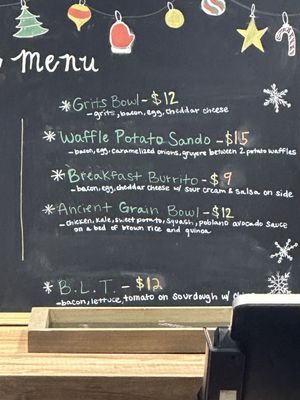 Menu
*Grits Bowl - $12
- grits, bacon, egg, cheddar cheese
*Waffle Potato Sando - $15
- bacon, egg, caramelized onions, gruyere between 2 potato waffles
*Breakfast Burrito - $9
- bacon, egg, cheddar cheese w/ sour cream & salsa on side
*Ancient Grain Bowl - $12
- chicken, kale, sweet potato, squash, poblano avocado sauce
on a bed of brown rice and quinoa
*B.L.T. - $12
- bacon, lettuce, tomato on sourdough w/